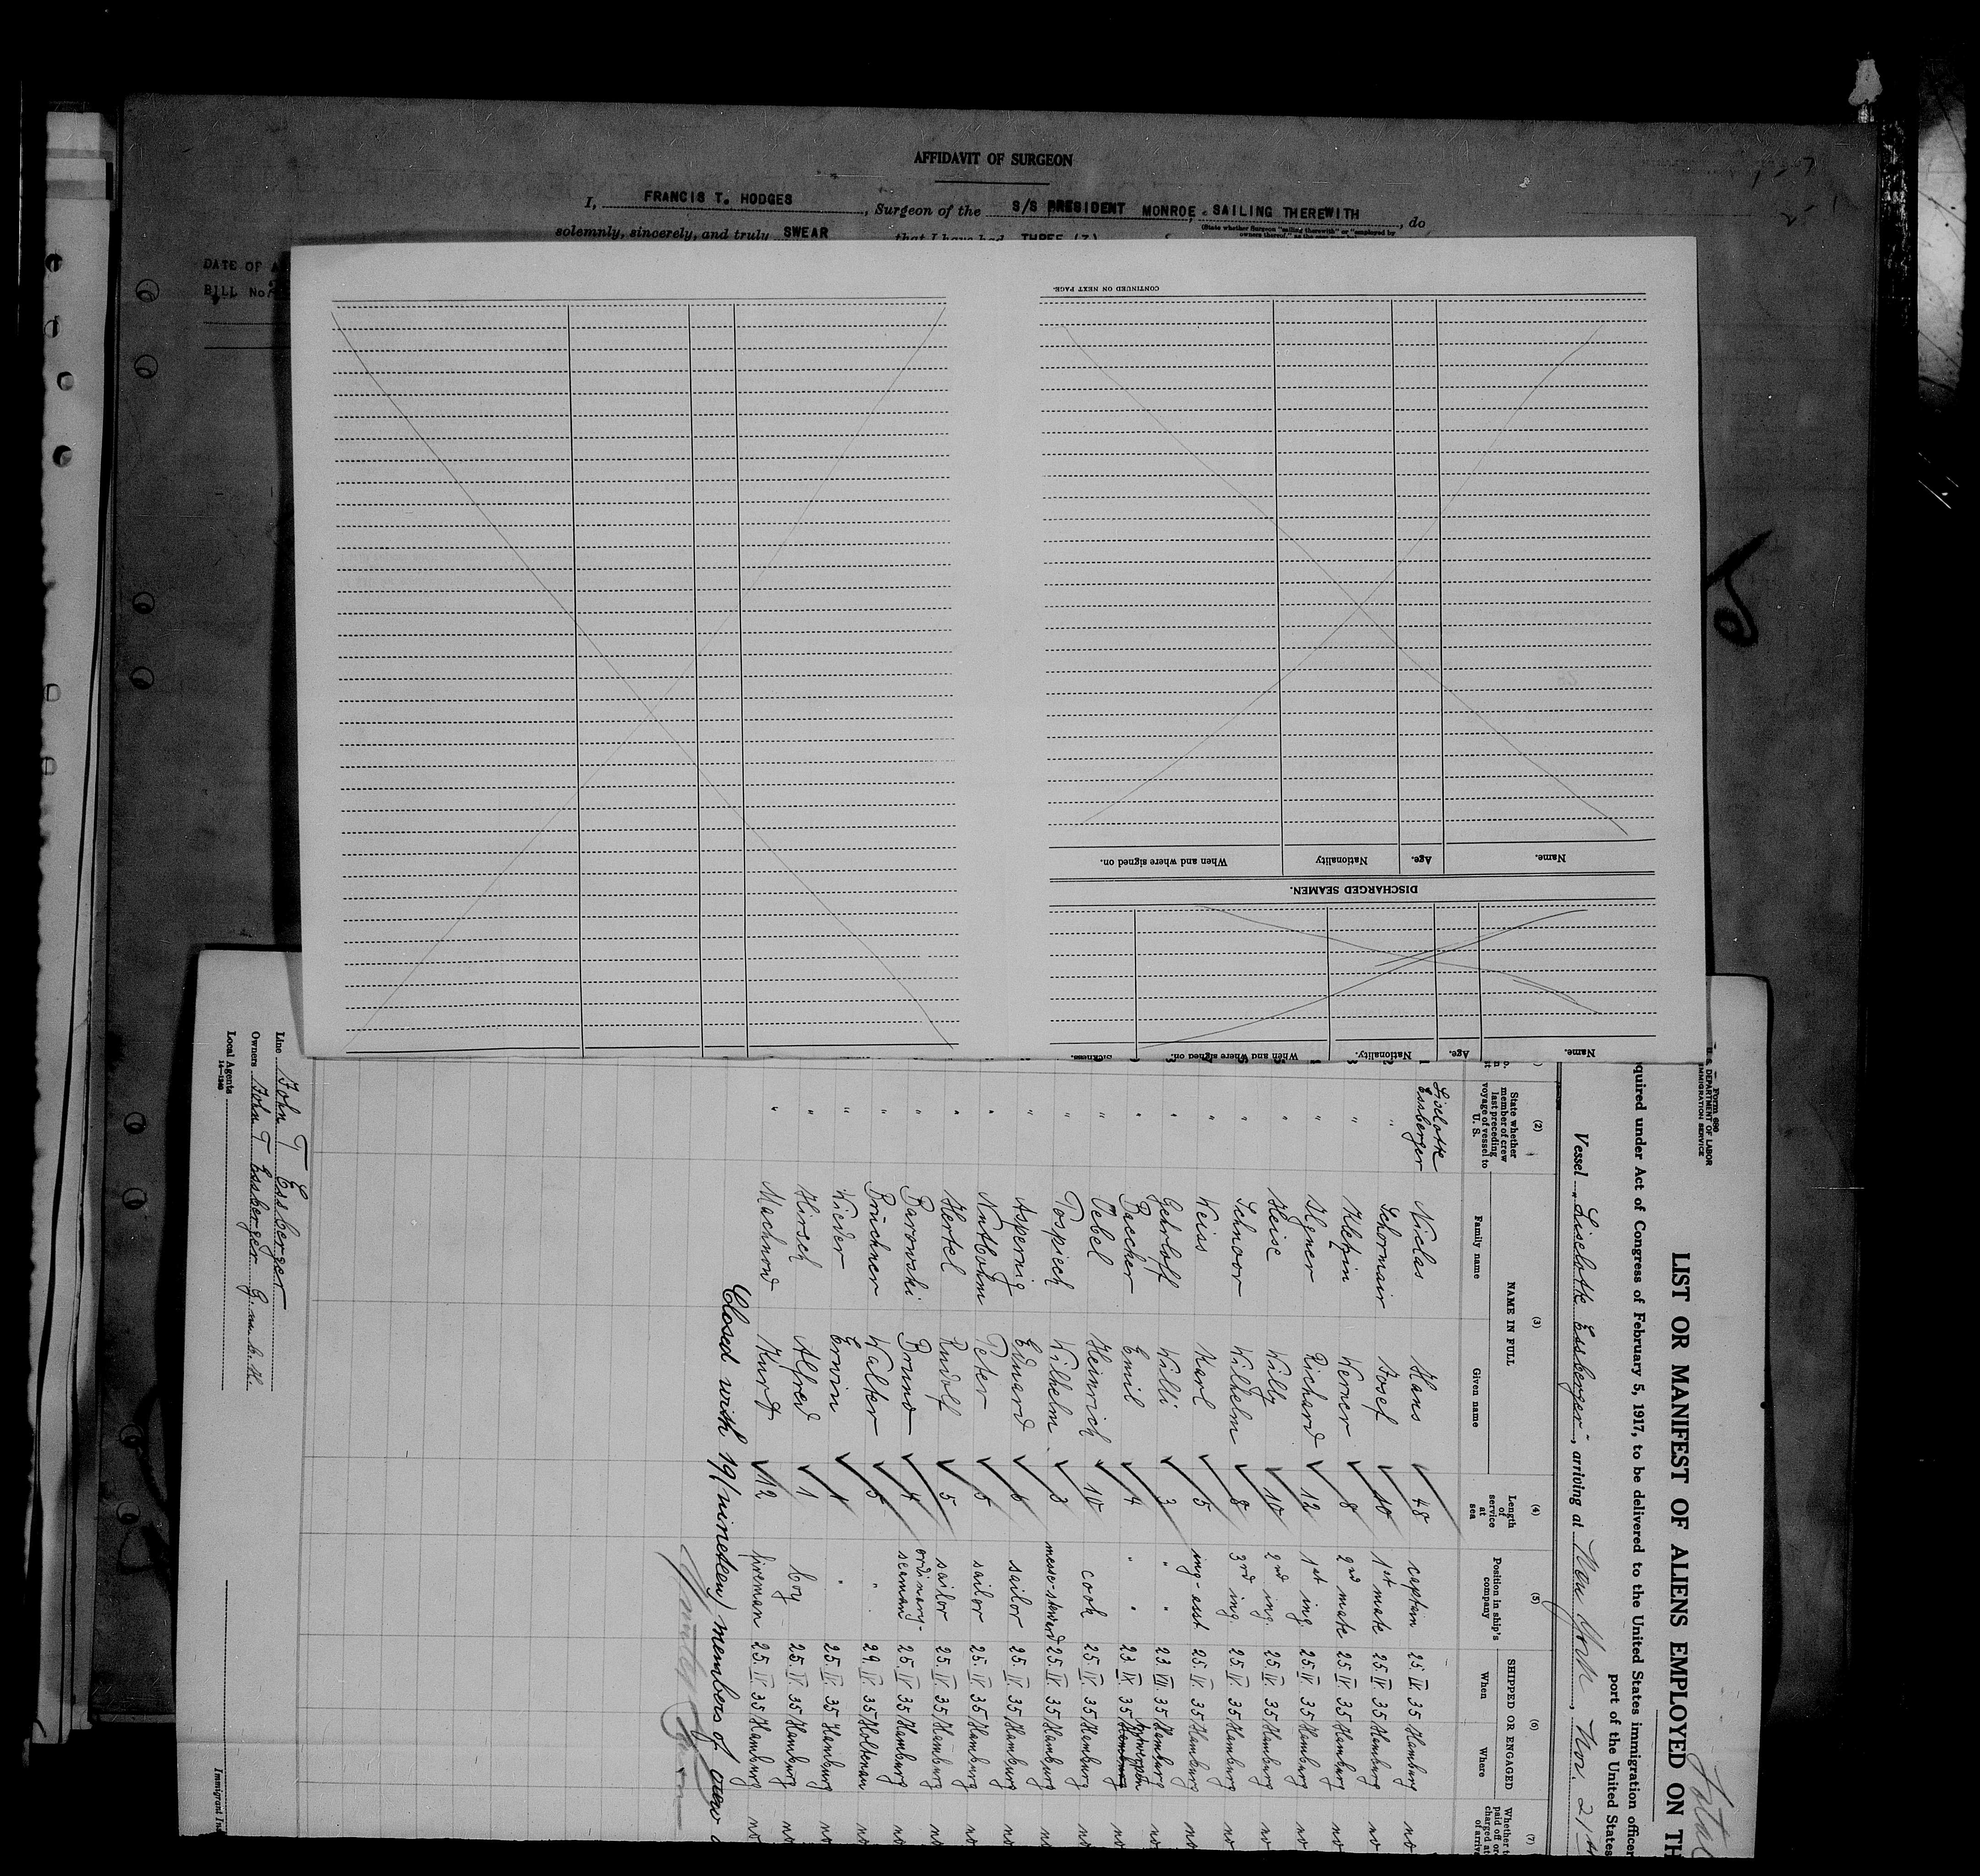 AFFIDAVIT OF SURGEON
I, FRANCIS T. HODGES, Surgeon of the S/S PRESIDENT MONROE, SAILING THEREWITH, do
(State whether Surgeon "sailing therewith" or "employed by
owners thereof," as the case may be)
solemnly, sincerely, and truly SWEAR that I have had THREE (3)
DATE OF
BILL No.
CONTINUED ON NEXT PAGE.
When and where signed on. Nationality Age. Name.
DISCHARGED SEAMEN.
Sickness. When and where signed on. Nationality. Age. Name.
Form 680
U. S. DEPARTMENT OF LABOR
IMMIGRATION SERVICE
Total
LIST OR MANIFEST OF ALIENS EMPLOYED ON TH
quired under Act of Congress of February 5, 1917, to be delivered to the United States immigration officer
port of the United States
Vessel "Liselotte Essberger", arriving at New York, Nov. 21st
(2) (3) (4) (5) (6) (7)
State whether member of crew last preceding voyage of vessel to U. S. NAME IN FULL Length of service at sea Position in ship's company SHIPPED OR ENGAGED
Family name Given name When Where
Liselotte Essberger Niclas Hans 48 captain 25. IV. 35 Hamburg no
" Schormair Josef 10 1st mate 25. IV. 35 Hamburg no
" Kletzin Werner 8 2nd mate 25. IV. 35 Hamburg no
" Richard 12 1st ing. 25. IV. 35 Hamburg no
" Heise Willy 10 2nd ing. 25. IV. 35 Hamburg no
" Schnoor Wilhelm 8 3rd ing. 25. IV. 35 Hamburg no
" Weiss Karl 5 ing-asst 25. IV. 35 Hamburg no
" Gehrloff Willi 3 " " 23. VII. 35 Hamburg no
" Baecker Emil 4 " " 23. IX. 35 Antwerpen no
" Oebel Heinrich 10 cook 25. IV. 35 Hamburg no
" Pospiech Wilhelm 3 messe-steward 25. IV. 35 Hamburg no
" Aspernig Eduard 6 sailor 25. IV. 35 Hamburg no
" Peter 5 sailor 25. IV. 35 Hamburg no
" Hertel Rudolf 5 sailor 25. IV. 35 Hamburg no
" Barowski Bruno 4 ordinary-seaman 25. IV. 35 Hamburg no
" Brückner Walter 5 " 29. IV. 35 Holtenau no
" Wieder Erwin 1 " 25. IV. 35 Hamburg no
" Hirsch Alfred 1 boy 25. IV. 35 Hamburg no
" Machnow Kurt 12 fireman 25. IV. 35 Hamburg no
Closed with 19 (nineteen) members of crew
Line John T Essberger
Owners John T Essberger G.m.b.H.
Local Agents
14—1240